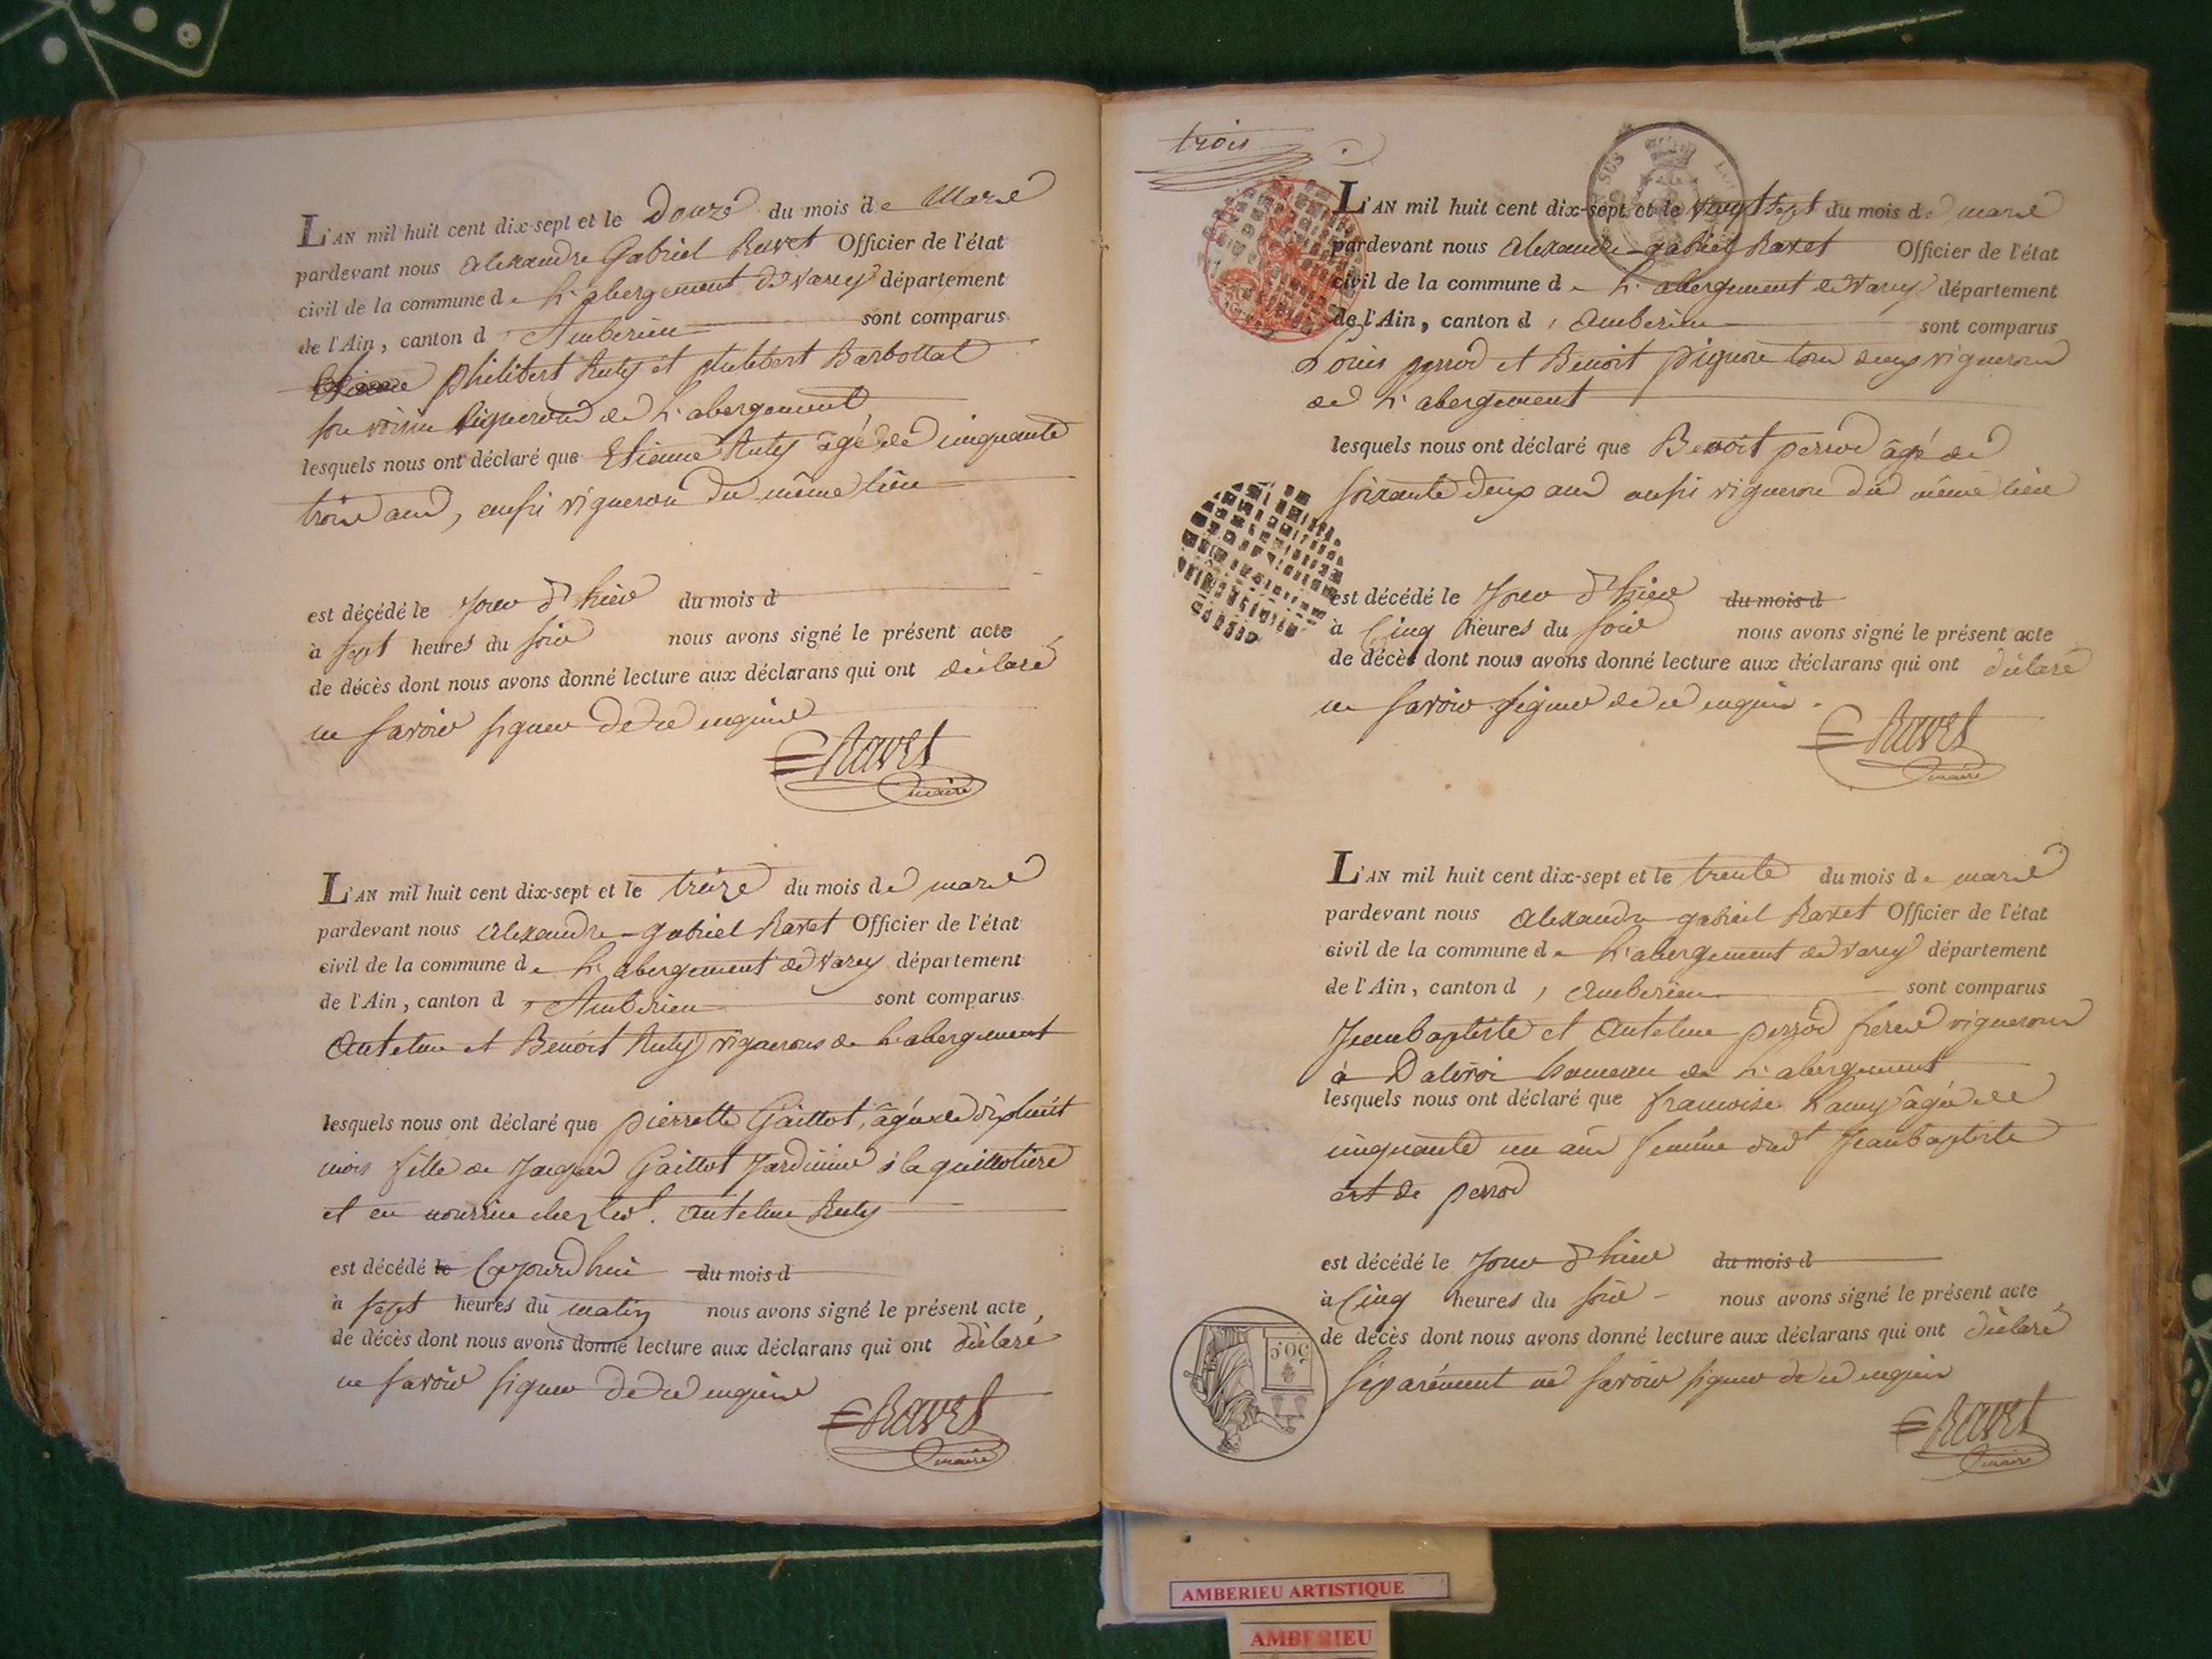 L'AN mil huit cent dix-sept et le Douze du mois de Mars
pardevant nous Alexandre Gabriel Ravet Officier de l'état
civil de la commune de L'abergement de Varey département
de l'Ain, canton d'Amberieu sont comparus
philibert Ruty et philibert Barbollat
son voisin vignerons de L'abergement
lesquels nous ont déclaré que Etienne Ruty âgé de cinquante
trois ans, aussi vigneron du même lieu
est décédé le Jour d'hier du mois d
à sept heures du soir nous avons signé le présent acte
de décès dont nous avons donné lecture aux déclarans qui ont déclaré
ne savoir signer de ce enquis
Ravet
maire
L'AN mil huit cent dix-sept et le treize du mois de mars
pardevant nous Alexandre-gabriel Ravet Officier de l'état
civil de la commune de L'abergement de Varey département
de l'Ain, canton d'Amberieu sont comparus
Antelme et Benoit Ruty vignerons de L'abergement
lesquels nous ont déclaré que pierrette Gaillot, âgée de dixhuit
mois fille de Jacques Gaillot Jardinier à la guillotiere
et en nourrice chez led't. Antelme Ruty
est décédé le Cejourd'hui du mois d
à sept heures du matin nous avons signé le présent acte
de décès dont nous avons donné lecture aux déclarans qui ont déclaré
ne savoir signer de ce enquis
Ravet
maire
trois
L'AN mil huit cent dix-sept et le vingt sept du mois de mars
pardevant nous Alexandre-gabriel Ravet Officier de l'état
civil de la commune de L'abergement de Varey département
de l'Ain, canton d'Amberieu sont comparus
Louis perrod et Benoit pignon tous deux vignerons
de L'abergement
lesquels nous ont déclaré que Benoit perrod âgé de
soixante deux ans aussi vigneron du même lieu
est décédé le Jour d'hier du mois d
à Cinq heures du soir nous avons signé le présent acte
de décès dont nous avons donné lecture aux déclarans qui ont déclaré
ne savoir signer de ce enquis.
Ravet
maire
L'AN mil huit cent dix-sept et le trente du mois de mars
pardevant nous Alexandre gabriel Ravet Officier de l'état
civil de la commune de L'abergement de Varey département
de l'Ain, canton d'Amberieu sont comparus
Jeanbaptiste et Antelme perrod freres vignerons
à Dalivoi hameau de L'abergement
lesquels nous ont déclaré que francoise Lamy âgée de
cinquante un an femme dud't Jeanbaptiste
est de perrod
est décédé le Jour d'hier du mois d
à Cinq heures du soir nous avons signé le présent acte
de décès dont nous avons donné lecture aux déclarans qui ont déclaré
séparément ne savoir signer de ce enquis
Ravet
maire
50 c
AMBERIEU ARTISTIQUE
AMBERIEU